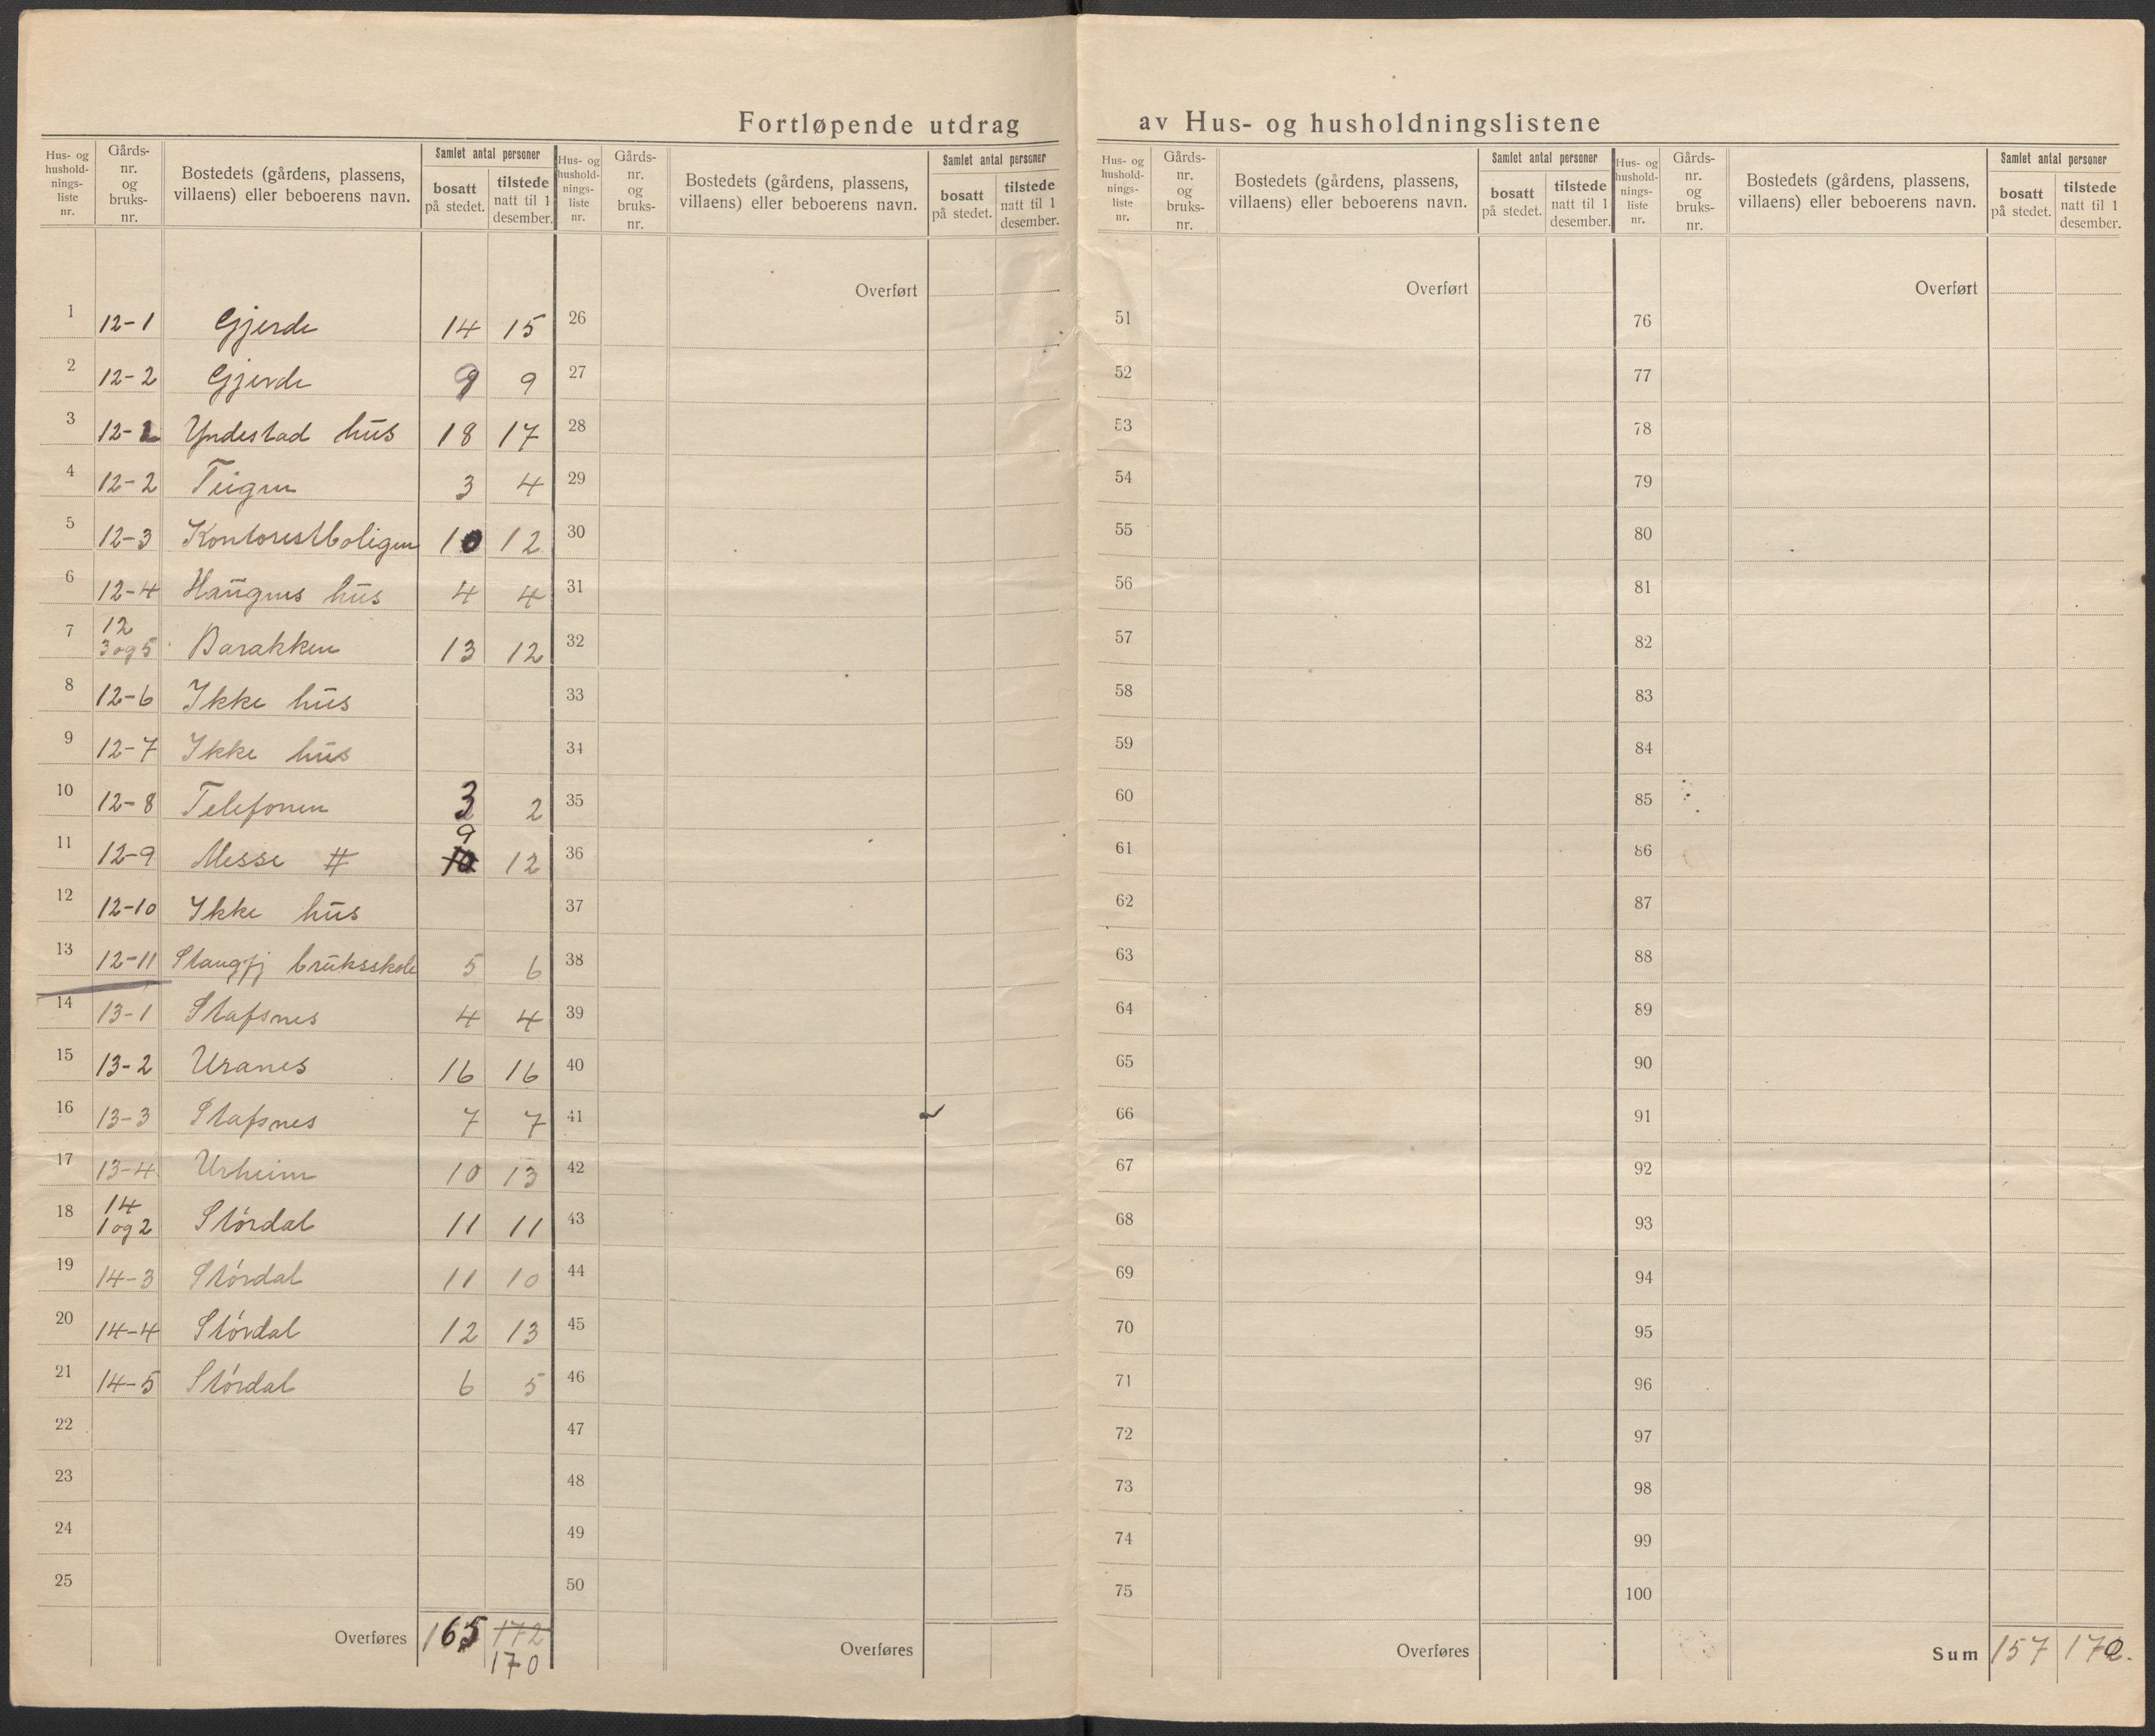 Fortløpende utdrag av Hus- og husholdningslistene
Hus- og husholdnings-liste nr. | Gårds-nr. og bruks-nr. | Bostedets (gårdens, plassens, villaens) eller beboerens navn. | Samlet antal personer | bosatt på stedet. | tilstede natt til 1 desember.
1 12-1 Gjerde 14 15
2 12-2 Gjerde 9 9
3 12-1 Yndestad hus 18 17
4 12-2 Teigen 3 4
5 12-3 Kontoristboligen 10 12
6 12-4 Haugens hus 4 4
7 12 3 og 5 Barakken 13 12
8 12-6 Ikke hus
9 12-7 Ikke hus
10 12-8 Telefonen 3 2
11 12-9 Messe # 9 10 12
12 12-10 Ikke hus
13 12-11 Stangfj bruksskole 5 6
14 13-1 Stafsnes 4 4
15 13-2 Uranes 16 16
16 13-3 Stafsnes 7 7
17 13-4 Urheim 10 13
18 14 1 og 2 Stórdal 11 11
19 14-3 Stórdal 11 10
20 14-4 Stórdal 12 13
21 14-5 Stórdal 6 5
22
23
24
25
Overføres 165 172
170
Hus- og husholdnings-liste nr. | Gårds-nr. og bruks-nr. | Bostedets (gårdens, plassens, villaens) eller beboerens navn. | Samlet antal personer | bosatt på stedet. | tilstede natt til 1 desember.
Overført
26
27
28
29
30
31
32
33
34
35
36
37
38
39
40
41
42
43
44
45
46
47
48
49
50
Overføres
Hus- og husholdnings-liste nr. | Gårds-nr. og bruks-nr. | Bostedets (gårdens, plassens, villaens) eller beboerens navn. | Samlet antal personer | bosatt på stedet. | tilstede natt til 1 desember.
Overført
51
52
53
54
55
56
57
58
59
60
61
62
63
64
65
66
67
68
69
70
71
72
73
74
75
Overføres
Hus- og hushold-nings-liste nr. | Gårds-nr. og bruks-nr. | Bostedets (gårdens, plassens, villaens) eller beboerens navn. | Samlet antal personer | bosatt på stedet. | tilstede natt til 1 desember.
Overført
76
77
78
79
80
81
82
83
84
85
86
87
88
89
90
91
92
93
94
95
96
97
98
99
100
Sum 157 170.